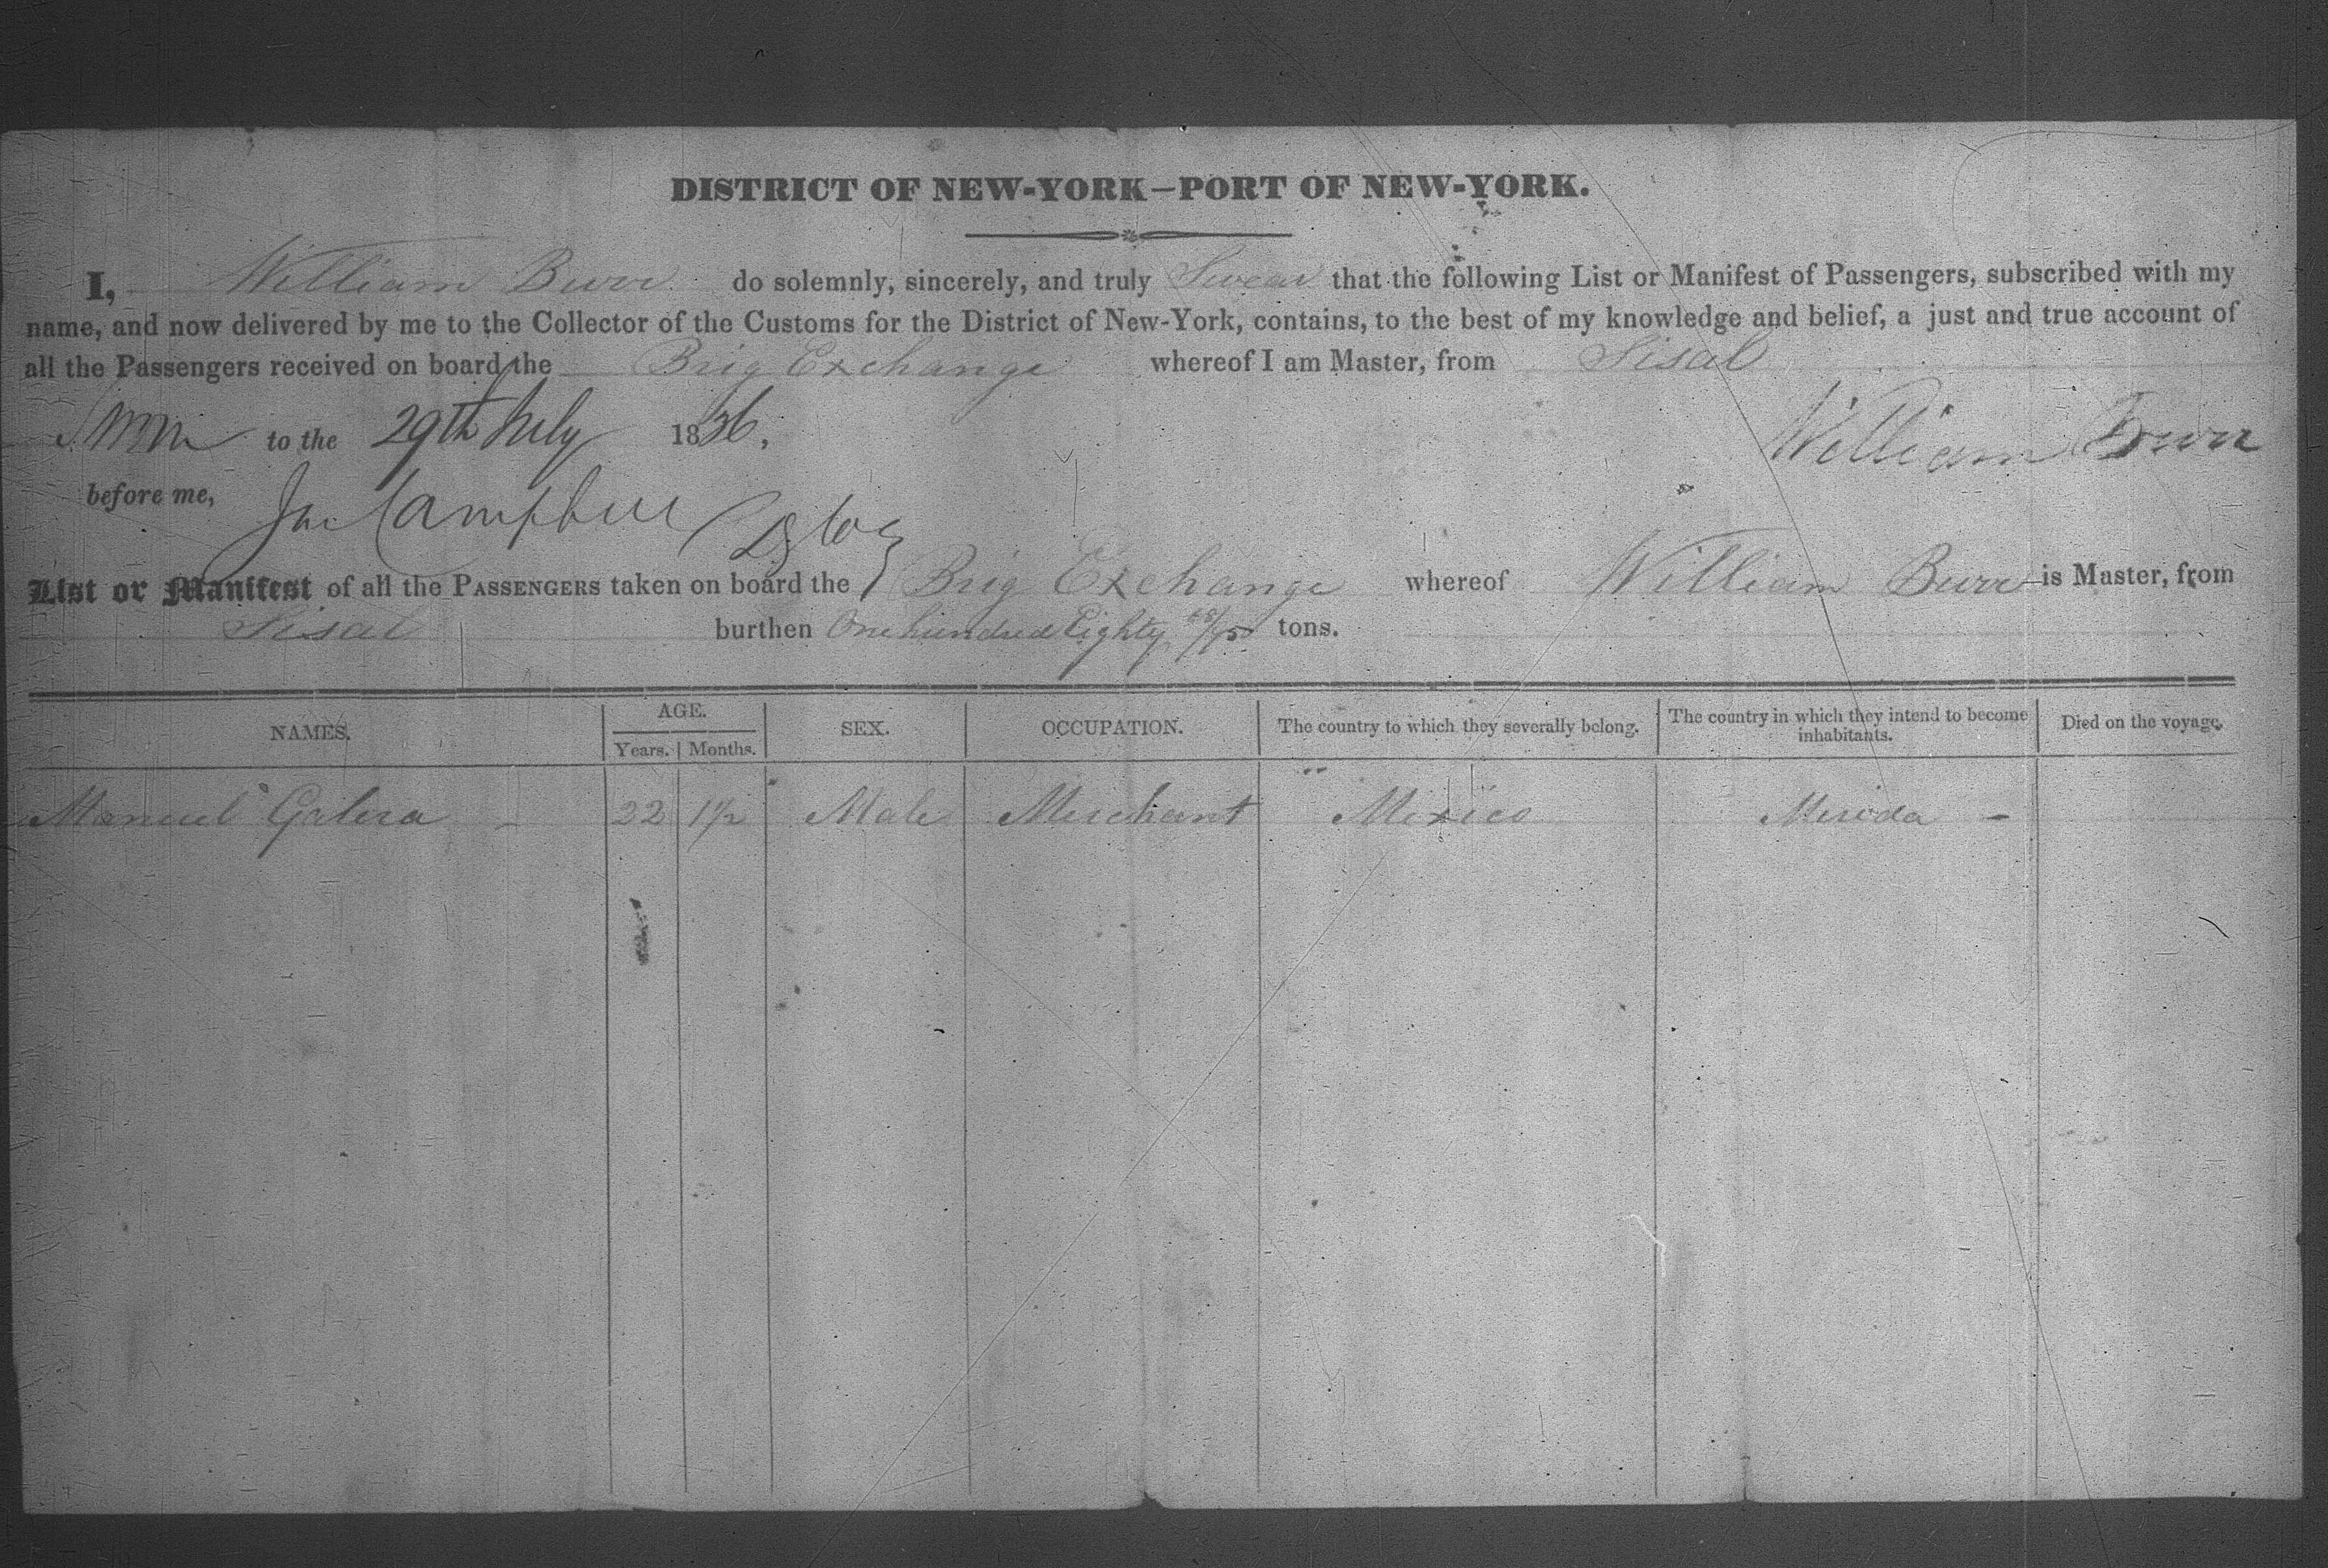 DISTRICT OF NEW-YORK—PORT OF NEW-YORK.
I, William Burr do solemnly, sincerely, and truly Swear that the following List or Manifest of Passengers, subscribed with my
name, and now delivered by me to the Collector of the Customs for the District of New-York, contains, to the best of my knowledge and belief, a just and true account of
all the Passengers received on board the Brig Exchange whereof I am Master, from Sisal
Sworn to the 29th July 1836,
William Burr
before me, Campbell
List or Manifest of all the PASSENGERS taken on board the Brig Exchange whereof William Burr is Master, from
Sisal burthen One hundred Eighty 48/95 tons.
NAMES. AGE. SEX. OCCUPATION. The country to which they severally belong. The country in which they intend to become inhabitants. Died on the voyage.
Years. Months.
Manuel Galera 22 1½ Male Merchant Mexico Merida -